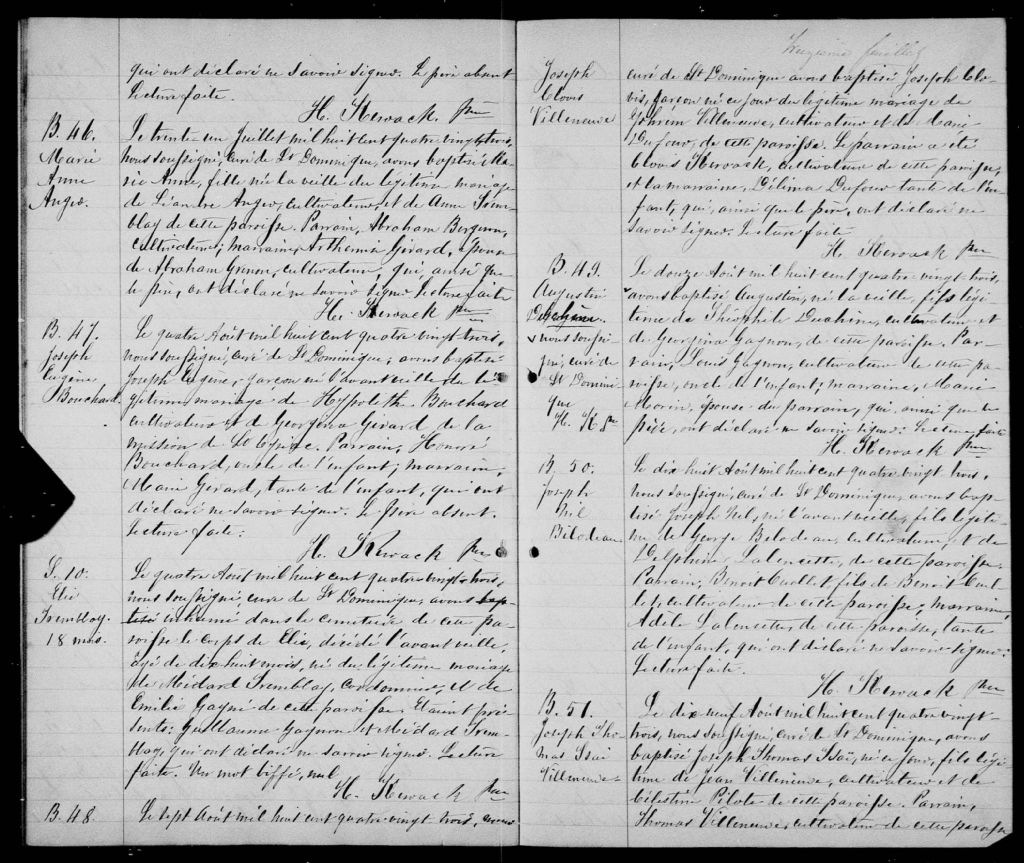 qui ont déclaré ne savoir signer. Le père absent
Lecture faite.
H. Kerouack Ptre
B. 46.
Marie
Anne
Angers.
Le trente un Juillet mil huit cent quatre vingt trois,
nous soussigné, curé de St Dominique, avons baptisé Ma-
rie Anne, fille née la veille du légitime mariage
de Léandre Angers, cultivateur, et de Anne Trem-
blay de cette paroisse. Parrain, Abraham
cultivateur; marraine, Arthemise Girard, épouse
de Abraham cultivateur, qui, ainsi que
le père, ont déclaré ne savoir signer. Lecture faite
H. Kerouack Ptre
B. 47.
Joseph
Eugène
Bouchard
Le quatre Août mil huit cent quatre vingt trois,
nous soussigné, curé de St Dominique, avons baptisé
Joseph Eugène, garçon né l'avant veille du lé-
gitime mariage de Hypolith Bouchard
cultivateur et de Georgina Girard de la
mission de St Cyriac. Parrain, Honoré
Bouchard, oncle de l'enfant; marraine,
Marie Girard, tante de l'enfant, qui ont
déclaré ne savoir signer. Le père absent.
Lecture faite.
H. Kerouack Ptre
S. 10.
Elie
Tremblay
18 mois.
Le quatre Août mil huit cent quatre vingt trois,
nous soussigné, curé de St Dominique, avons bap-
tisé inhumé dans le cimetière de cette pa-
roisse le corps de Elie, décédé l'avant veille,
âgé de dix huit mois, né du légitime mariage
de Médard Tremblay, cordonnier, et de
Emilie Gagné de cette paroisse. Etaient pré-
sents: Guillaume Gagnon et Médard Trem-
blay, qui ont déclaré ne savoir signer. Lecture
faite. Un mot biffé, nul
H. Kerouack Ptre
B. 48.
Le sept Août mil huit cent quatre vingt trois, nous
feuillet
Joseph
Clovis
Villeneuve
curé de St Dominique avons baptisé Joseph Clo-
vis, garçon né ce jour du légitime mariage de
Ephrem Villeneuve, cultivateur et de Marie
Dufour, de cette paroisse. Le parrain a été
Clovis Kerouack, cultivateur de cette paroisse,
et la marraine, Délima Dufour tante de l'en-
fant, qui, ainsi que le père, ont déclaré ne
savoir signer. Lecture faite
H. Kerouack Ptre
B. 49.
Augustin
Duchaine.
v nous soussi-
gné, curé de
St Domini-
que
H. K Ptre
Le douze Août mil huit cent quatre vingt trois,
v avons baptisé Augustin, né la veille, fils légi-
time de Théophile Duchaine, cultivateur et
de Georgina Gagnon, de cette paroisse. Par-
rain, Louis Gagnon, cultivateur de cette pa-
roisse, oncle de l'enfant; marraine, Marie
Morin, épouse du parrain, qui, ainsi que le
père, ont déclaré ne savoir signer. Lecture faite
H. Kerouack Ptre
B. 50.
Joseph
Nil
Bilodeau
Le dix huit Août mil huit cent quatre vingt trois,
nous soussigné, curé de St Dominique, avons bap-
tisé Joseph Nil, né l'avant veille, fils légiti-
me de George Bilodeau, cultivateur, et de
Delphine Lalancette, de cette paroisse.
Parrain, Benoit Ouellet, fils de Benoit Ouel-
let, cultivateur de cette paroisse; marraine,
Adèle Lalancette, de cette paroisse, tante
de l'enfant, qui ont déclaré ne savoir signer.
Lecture faite.
H. Kerouack Ptre
B. 51.
Joseph Tho-
mas Isaï
Villeneuve
Le dix neuf Août mil huit cent quatre vingt
trois, nous soussigné, curé de St Dominique, avons
baptisé Joseph Thomas Isaï, né ce jour, fils légi-
time de Jean Villeneuve, cultivateur et de
Célestine Pilote de cette paroisse. Parrain,
Thomas Villeneuve, cultivateur de cette paroisse